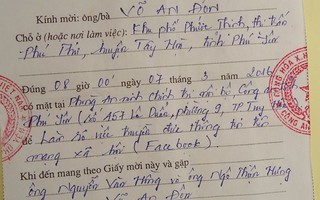 Kính mời: ông/bà VÕ AN ĐÔN
Chỗ ở (hoặc nơi làm việc): Khu phố Phước Thịnh, thị trấn
Phú Thứ, huyện Tây Hoà, tỉnh Phú Yên
Đúng 08 giờ 00' ngày 07 tháng 3 năm 2016
có mặt tại Phòng An ninh Chính trị nội bộ, Công an
Phú Yên (số 457 Lê Duẩn, phường 9, TP Tuy Hòa
để Làm rõ việc truyền đưa thông tin trên
mạng xã hội (Facebook).
Khi đến mang theo Giấy mời này và gặp
ông Nguyễn Văn Hồng và ông Ngô Thận Hưng
VÕ An Đôn